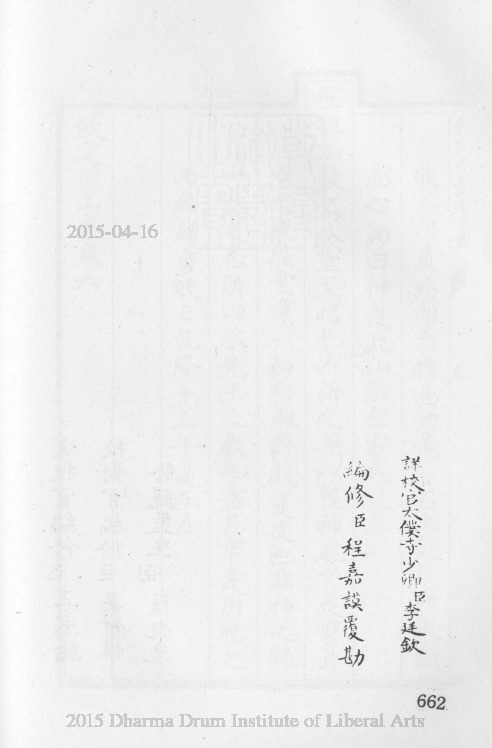 詳校官太僕寺少卿臣李廷欽
編修臣程嘉謨覆勘
2015-04-16
662
2015 Dharma Drum Institute of Liberal Arts